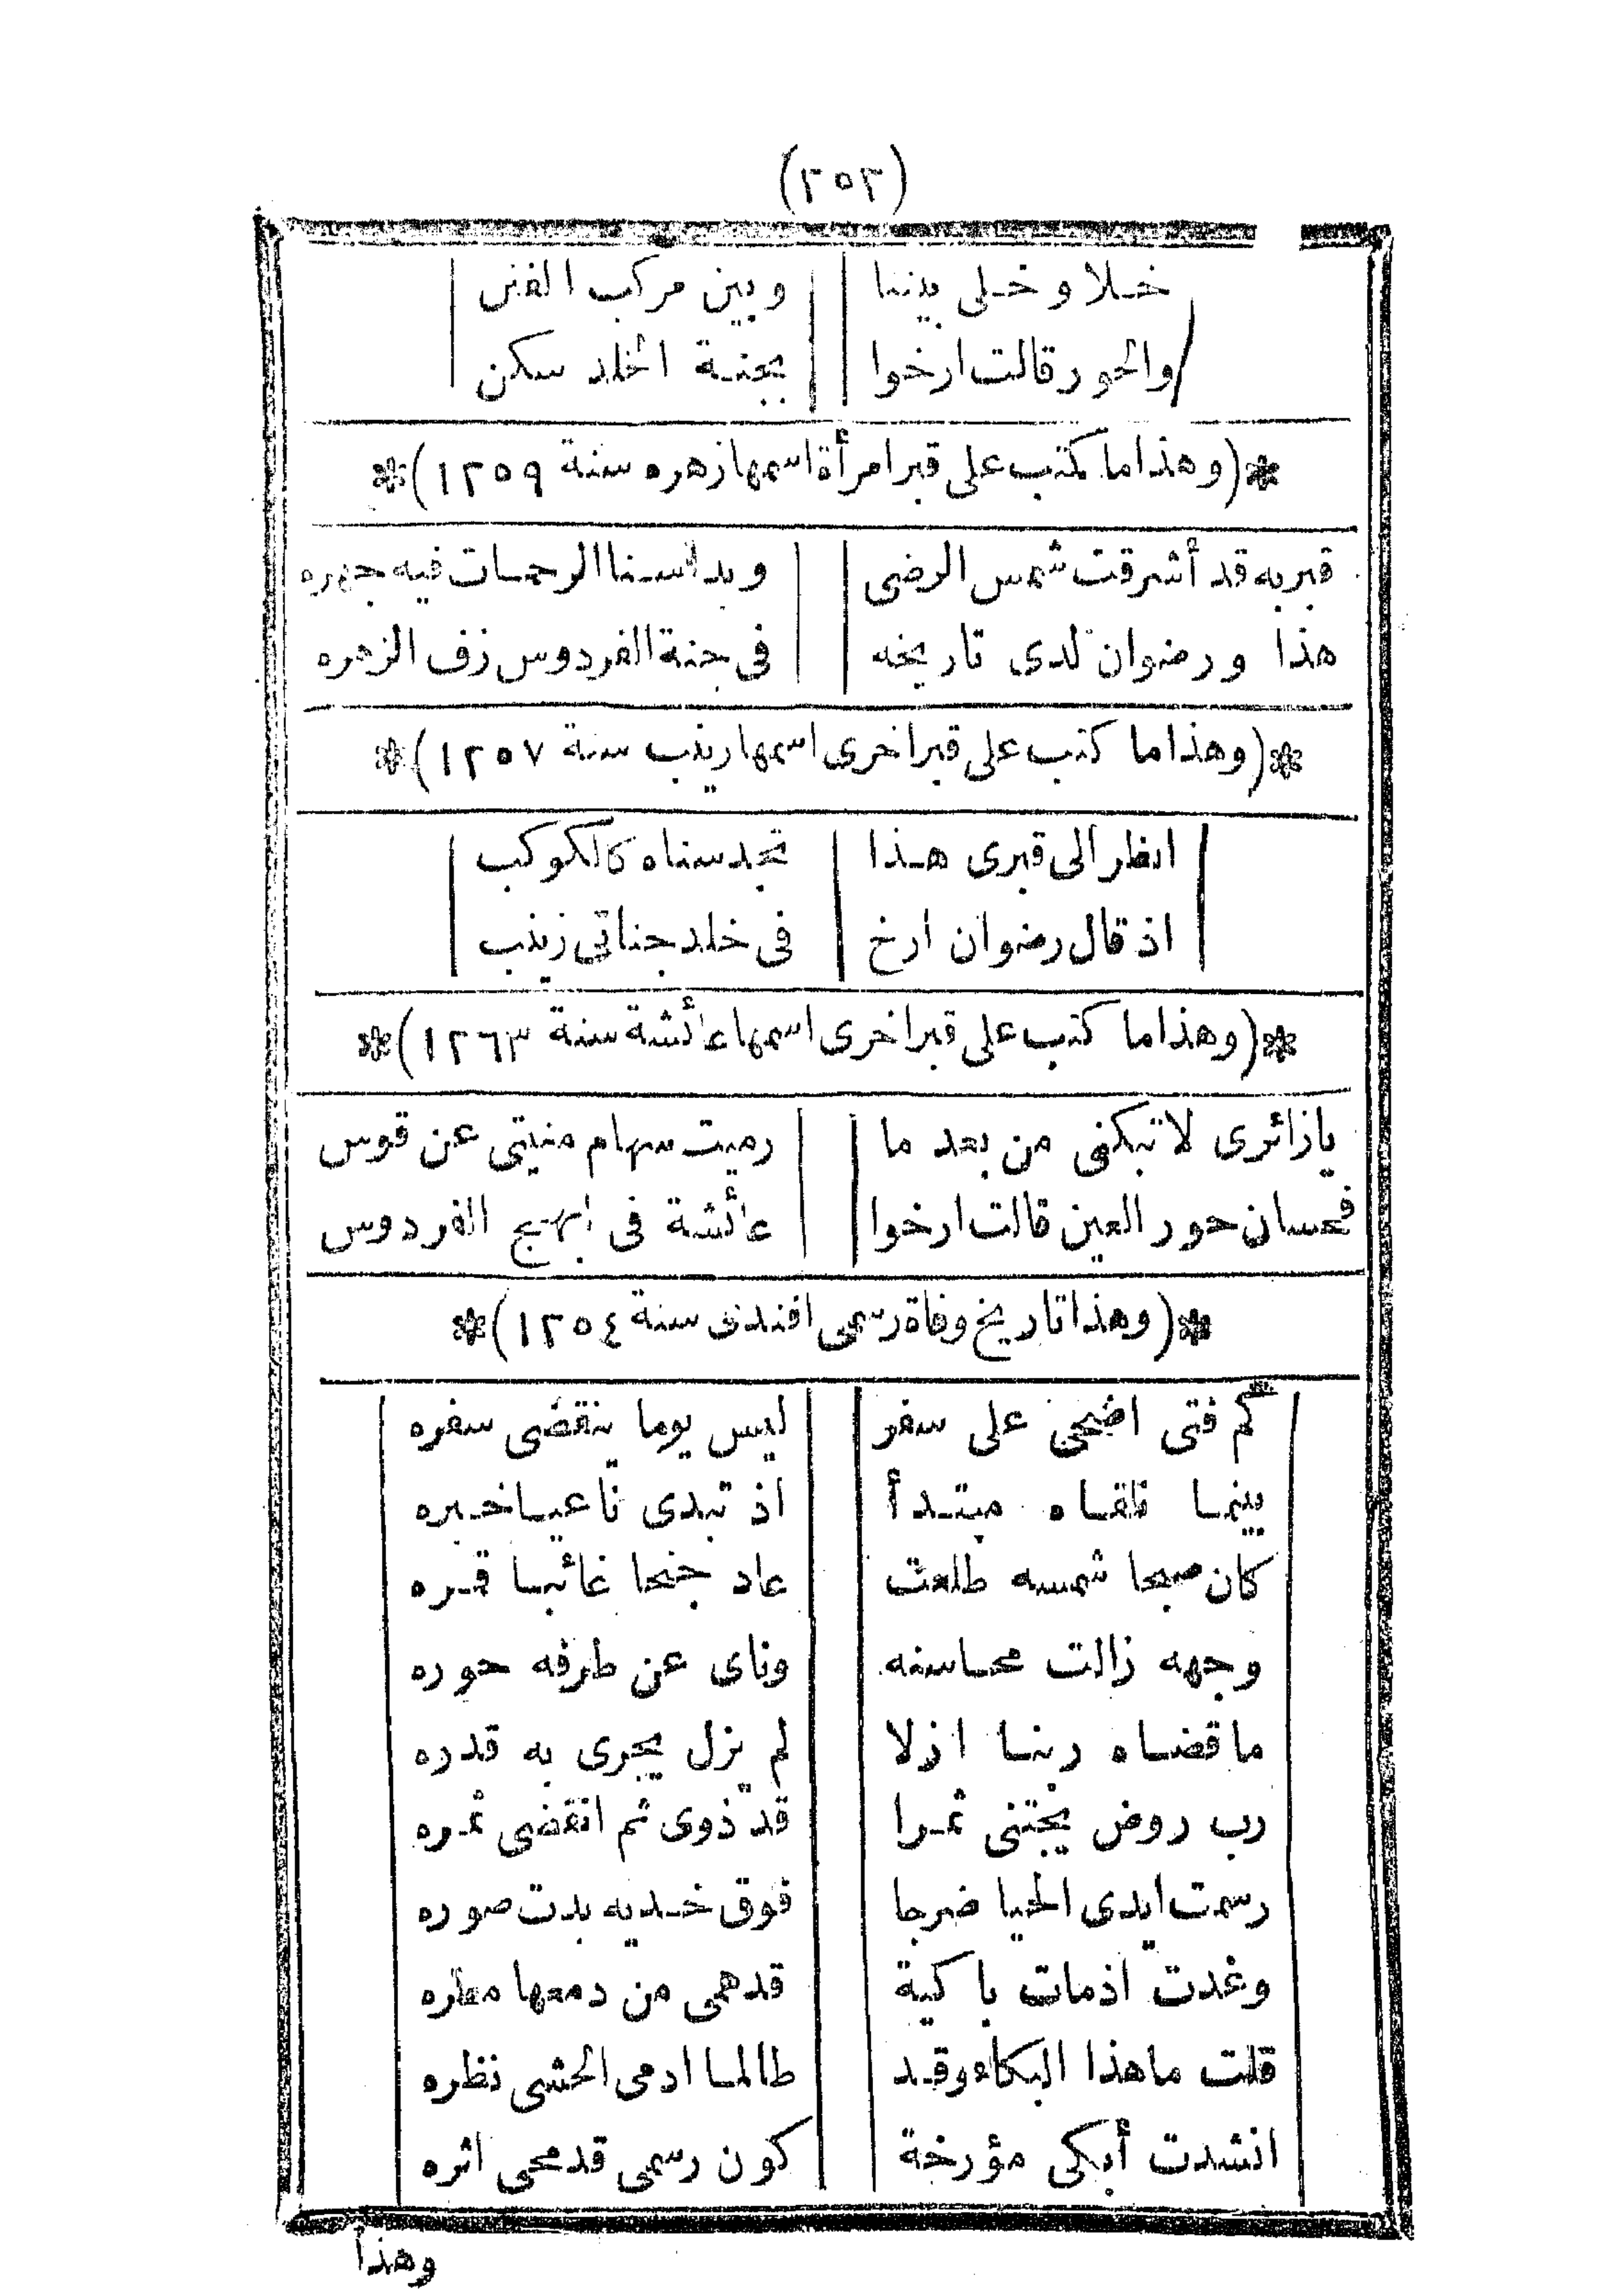 (٢٥٢)
خلا وخلى بيننا وبين مركب الفنن
والحور قالت ارخوا بجنة الخلد سكن
*(وهذا ما كتب على قبر امرأة اسمها زهره سنة ١٢٥٩)*
قبر به قد أشرقت شمس الرضى وبدا سنا الرحمات فيه جهره
هذا ورضوان لدى تاريخه فى جنة الفردوس زف الزهره
*(وهذا ما كتب على قبر اخرى اسمها زينب سنة ١٢٥٧)*
انظر الى قبرى هذا تجد سناه كالكوكب
اذ قال رضوان ارخ فى خلد جناتى زينب
*(وهذا ما كتب على قبر اخرى اسمها عائشة سنة ١٢٦٣)*
يازائرى لا تبكنى من بعد ما رميت سهام منيتى عن قوس
فحسان حور العين قالت ارخوا عائشة فى ابهج الفردوس
*(وهذا تاريخ وفاة رسمى افندى سنة ١٢٥٤)*
كم فتى اضحى على سفر ليس يوما ينقضى سفره
بينما تلقاه مبتدأ اذ تبدى ناعيا خبره
كان صبحا شمسه طلعت عاد جنحا غائبا قمره
وجهه زالت محاسنه وناى عن طرفه حوره
ما قضاه ربنا ازلا لم يزل يجرى به قدره
رب روض يجتنى ثمرا قد ذوى ثم انقضى ثمره
رسمت ايدى الحيا ضرجا فوق خديه بدت صوره
وغدت اذ مات باكية قد همى من دمعها مطره
قلت ما هذا البكاء وقد طالما ادمى الحشى نظره
انشدت أبكى مؤرخة كون رسمى قد محى اثره
وهذا